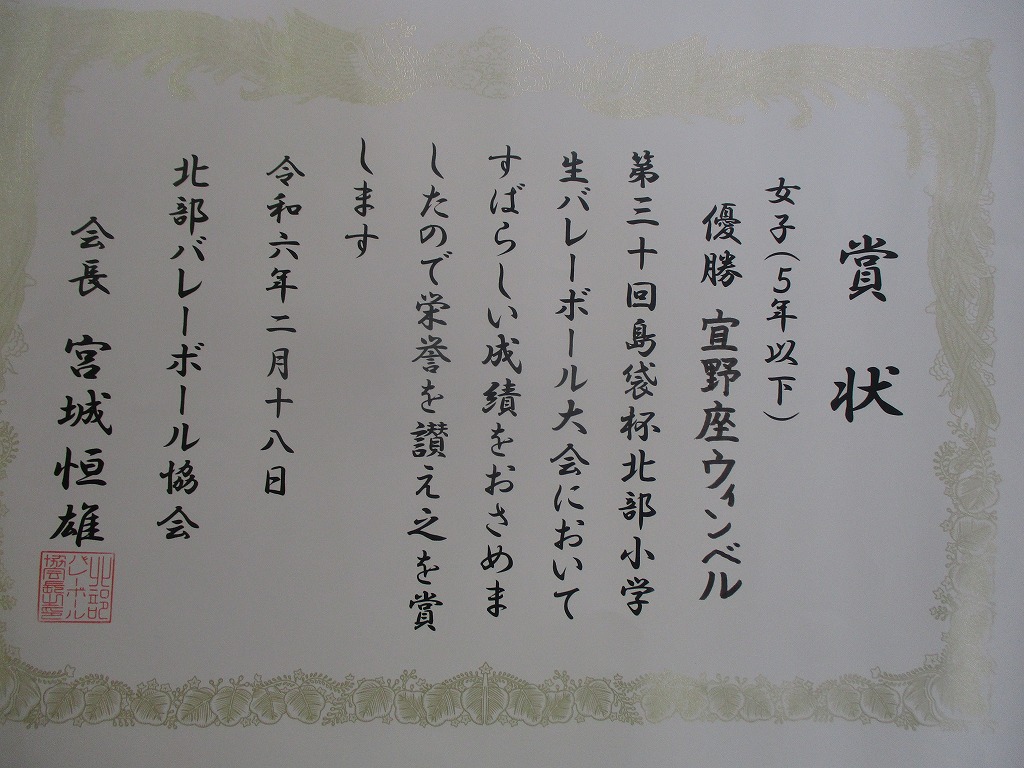 賞状
女子(5年以下)
優勝 宜野座ウィンベル
第三十回島袋杯北部小学
生バレーボール大会において
すばらしい成績をおさめま
したので栄誉を讃え之を賞
します
令和六年二月十八日
北部バレーボール協会
会長 宮城恒雄
北部
バレーボール
協会長之印